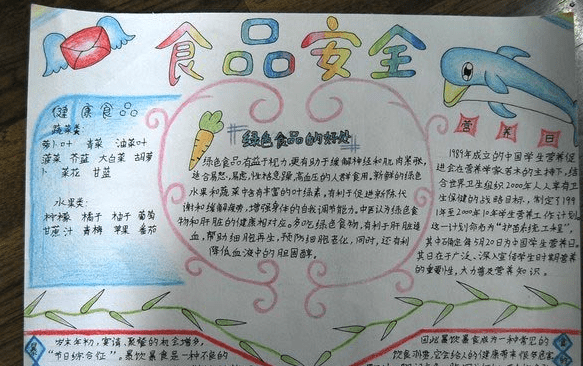 食品安全
健康食品
蔬菜类:
萝卜叶 青菜 油菜叶
菠菜 芥蓝 大白菜 胡萝
卜 菜花 甘蓝
水果类:
柠檬 橘子 柚子 葡萄
甘蔗汁 青梅 苹果 番茄
绿色食品的好处
绿色食品有益于视力,更有助于缓解神经和肌肉紧张,
适合易怒,易虑,性格急躁,高血压的人群食用,新鲜的绿色
水果和蔬菜中含有丰富的叶绿素,有利于促进新陈代
谢和缓解疲劳,增强身体的自我调节能力。中医认为绿色食
物和肝脏的健康相对应。多吃绿色食物,有利于肝脏造
血,帮助细胞再生,预防细胞老化,同时,还有利
降低血液中的胆固醇。
营养日
1989年成立的中国学生营养促
进会在营养学家 的主持下,结
合世界卫生组织2000年人人享有卫
生保健的战略目标,制定了199
1年至2000年10年学生营养工作计划
这一计划命名为“护苗系统工程”,
其中确定每5月20日为中国学生营养日。
其目在于广泛、深入宣传学生时期营养
的重要性,大力普及营养知识。
岁末年初,宴请、聚餐的机会增多,
“节日综合症”。暴饮暴食是一种不良的
因此暴饮暴食成为一种常见的
饮食习惯,它会给人的健康带来很多危害